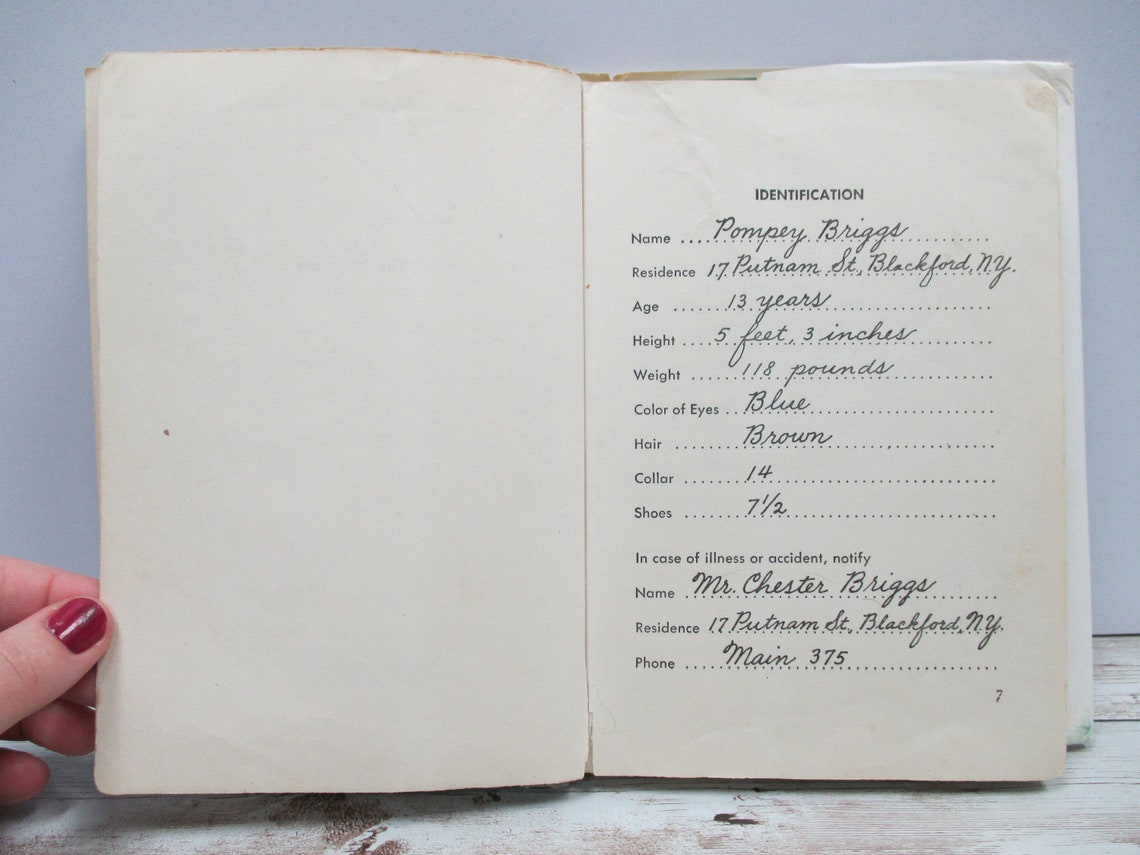 IDENTIFICATION
Name .... Pompey Briggs
Residence 17 Putnam St., Blackford, N.Y.
Age 13 years
Height .... 5 feet, 3 inches
Weight 118 pounds
Color of Eyes .. Blue
Hair Brown
Collar 14
Shoes 7 1/2
In case of illness or accident, notify
Name Mr. Chester Briggs
Residence 17 Putnam St., Blackford, N.Y.
Phone Main 375
7